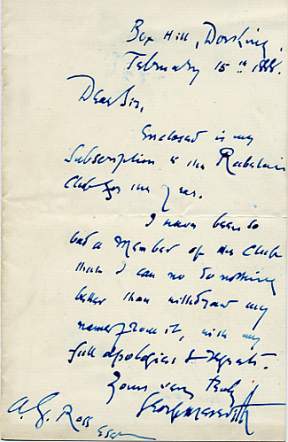 Box Hill, Dorking,
February 15th 1888.
Dear Sir,
Enclosed is my
Subscription to the Rabelais
Club for the year.
I have been so
bad a Member of the Club
that I can do nothing
better than withdraw my
name from it, with my
full apologies & regrets.
Yours very truly
George Meredith
A. G. Ross
Esqre